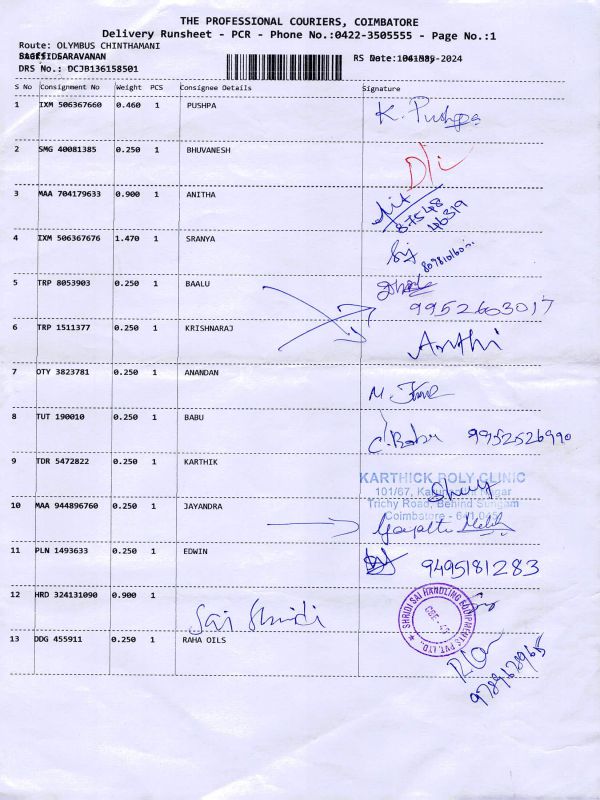 THE PROFESSIONAL COURIERS, COIMBATORE
Delivery Runsheet - PCR - Phone No.:0422-3505555 - Page No.:1
Route: OLYMBUS CHINTHAMANI
SARAVANAN RS Date: -2024
DRS No.: DCJB136158501
S No Consignment No Weight PCS Consignee Details Signature
1 IXM 506367660 0.460 1 PUSHPA K. Pushpa
2 SMG 40081385 0.250 1 BHUVANESH
3 MAA 704179633 0.900 1 ANITHA
87548
46319
4 IXM 506367676 1.470 1 SRANYA
5 TRP 8053903 0.250 1 BAALU
9952603017
6 TRP 1511377 0.250 1 KRISHNARAJ Arthi
7 OTY 3823781 0.250 1 ANANDAN
8 TUT 190010 0.250 1 BABU C. Babu 9952526990
9 TDR 5472822 0.250 1 KARTHIK
KARTHICK POLY CLINIC
101/67, Nagar
Trichy Road, Behind Sungam
Coimbatore - 641 045
10 MAA 944896760 0.250 1 JAYANDRA
11 PLN 1493633 0.250 1 EDWIN 9495181283
12 HRD 324131090 0.900 1 Sai Shridi
SHRIDI SAI HANDLING EQUIPMENTS PVT. LTD.
CBE - 45
13 DDG 455911 0.250 1 RAHA OILS
9789628965